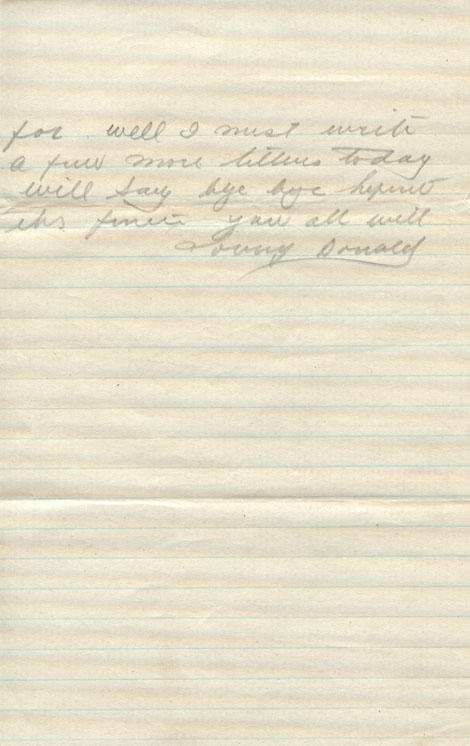 for. well I must write
a few more letters today
will Say bye bye hopeing
this finds you all well
Loving Donald